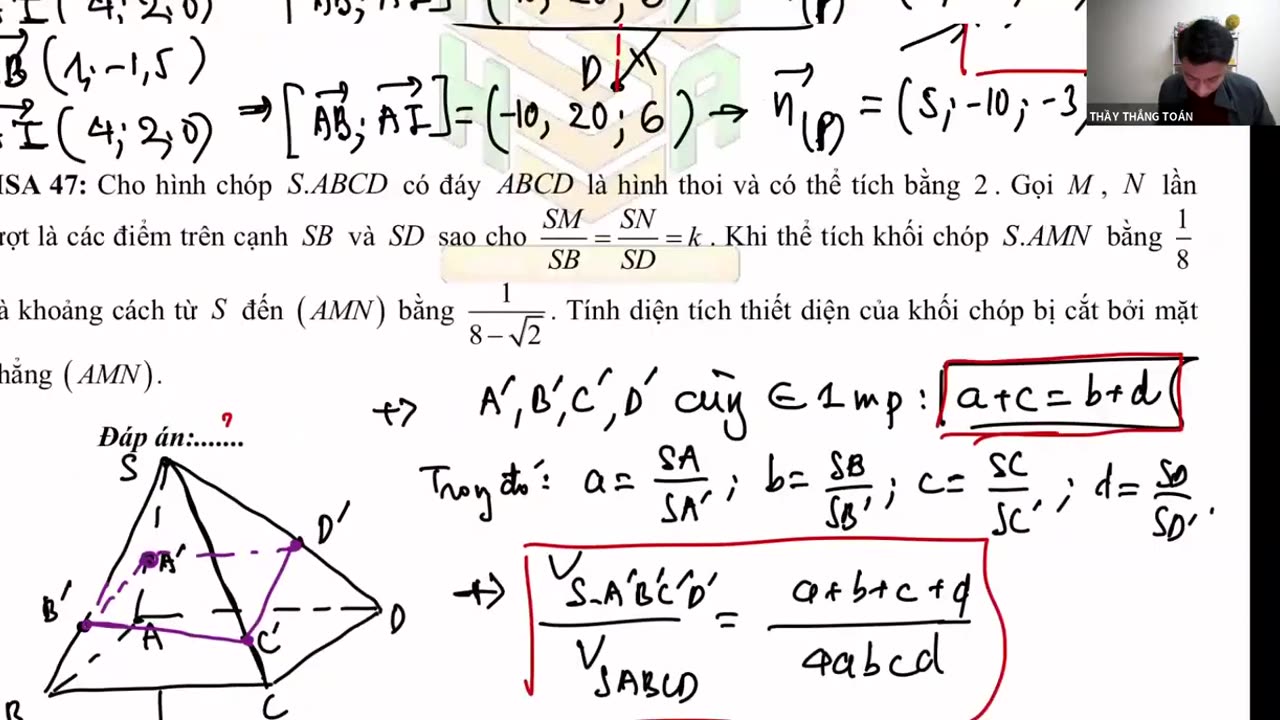 I(4; 2; 0)
B(1; -1, 5)
I(4; 2; 0) ⇒ [AB; AI] = (-10, 20; 6) → n(P) = (5; -10; -3
D
THẦY THẮNG TOÁN
HSA 47: Cho hình chóp S.ABCD có đáy ABCD là hình thoi và có thể tích bằng 2. Gọi M, N lần
rợt là các điểm trên cạnh SB và SD sao cho SM/SB = SN/SD = k. Khi thể tích khối chóp S.AMN bằng 1/8
à khoảng cách từ S đến (AMN) bằng 1/(8-√2). Tính diện tích thiết diện của khối chóp bị cắt bởi mặt
hẳng (AMN).
+> A', B', C', D' cùng ∈ 1 mp: a+c = b+d
Đáp án:....... ?
Trong đó: a = SA/SA'; b = SB/SB'; c = SC/SC'; d = SD/SD'.
+> V S.A'B'C'D' / V SABCD = (a+b+c+d) / 4abcd
S
D'
A'
B'
D
A
C'
B
C